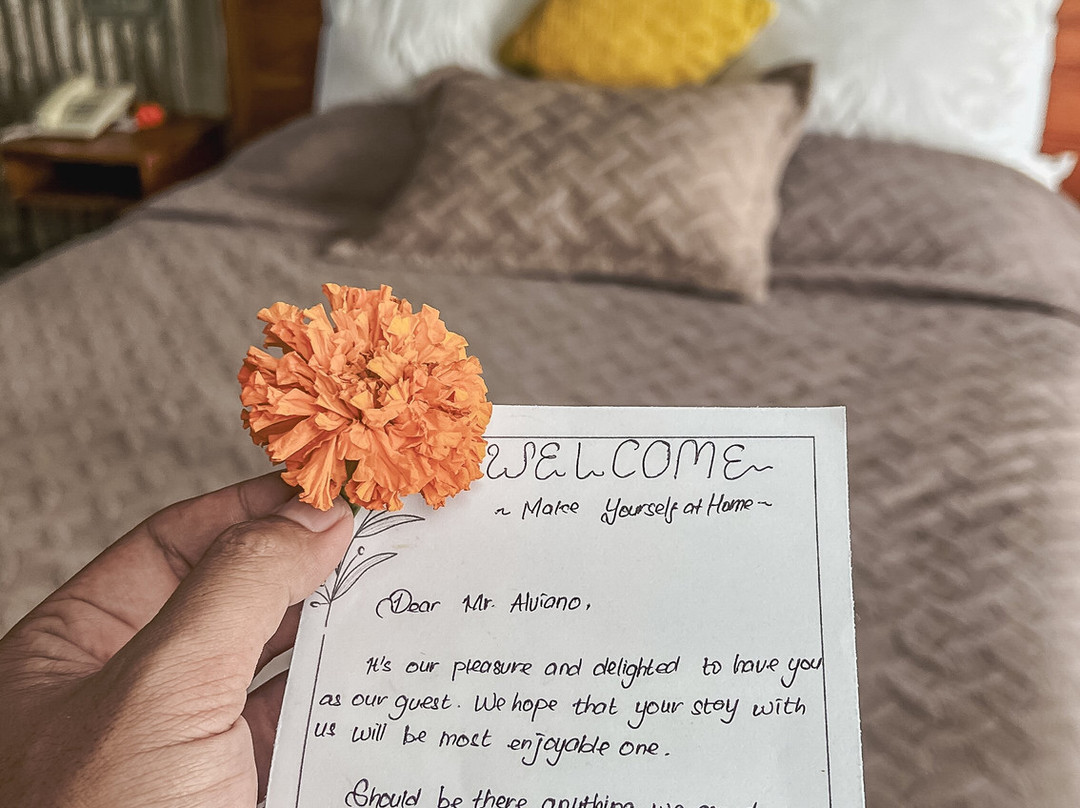 WELCOME~
~ Make Yourself at Home ~
Dear Mr. Alviano,
It's our pleasure and delighted to have you
as our guest. We hope that your stay with
us will be most enjoyable one.
Should be there anything we